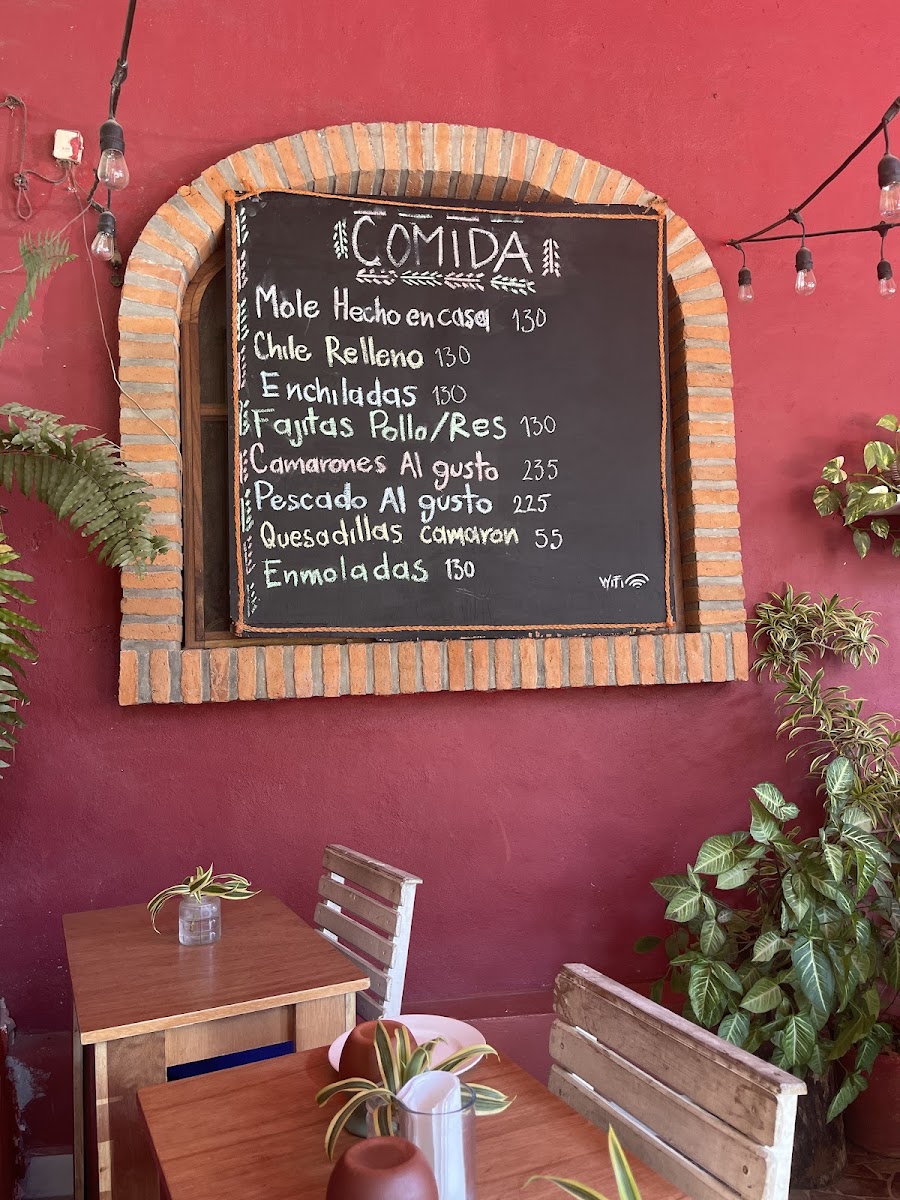 COMIDA
Mole Hecho en casa 130
Chile Relleno 130
Enchiladas 130
Fajitas Pollo/Res 130
Camarones Al gusto 235
Pescado Al gusto 225
Quesadillas camaron 55
Enmoladas 130
WiFi